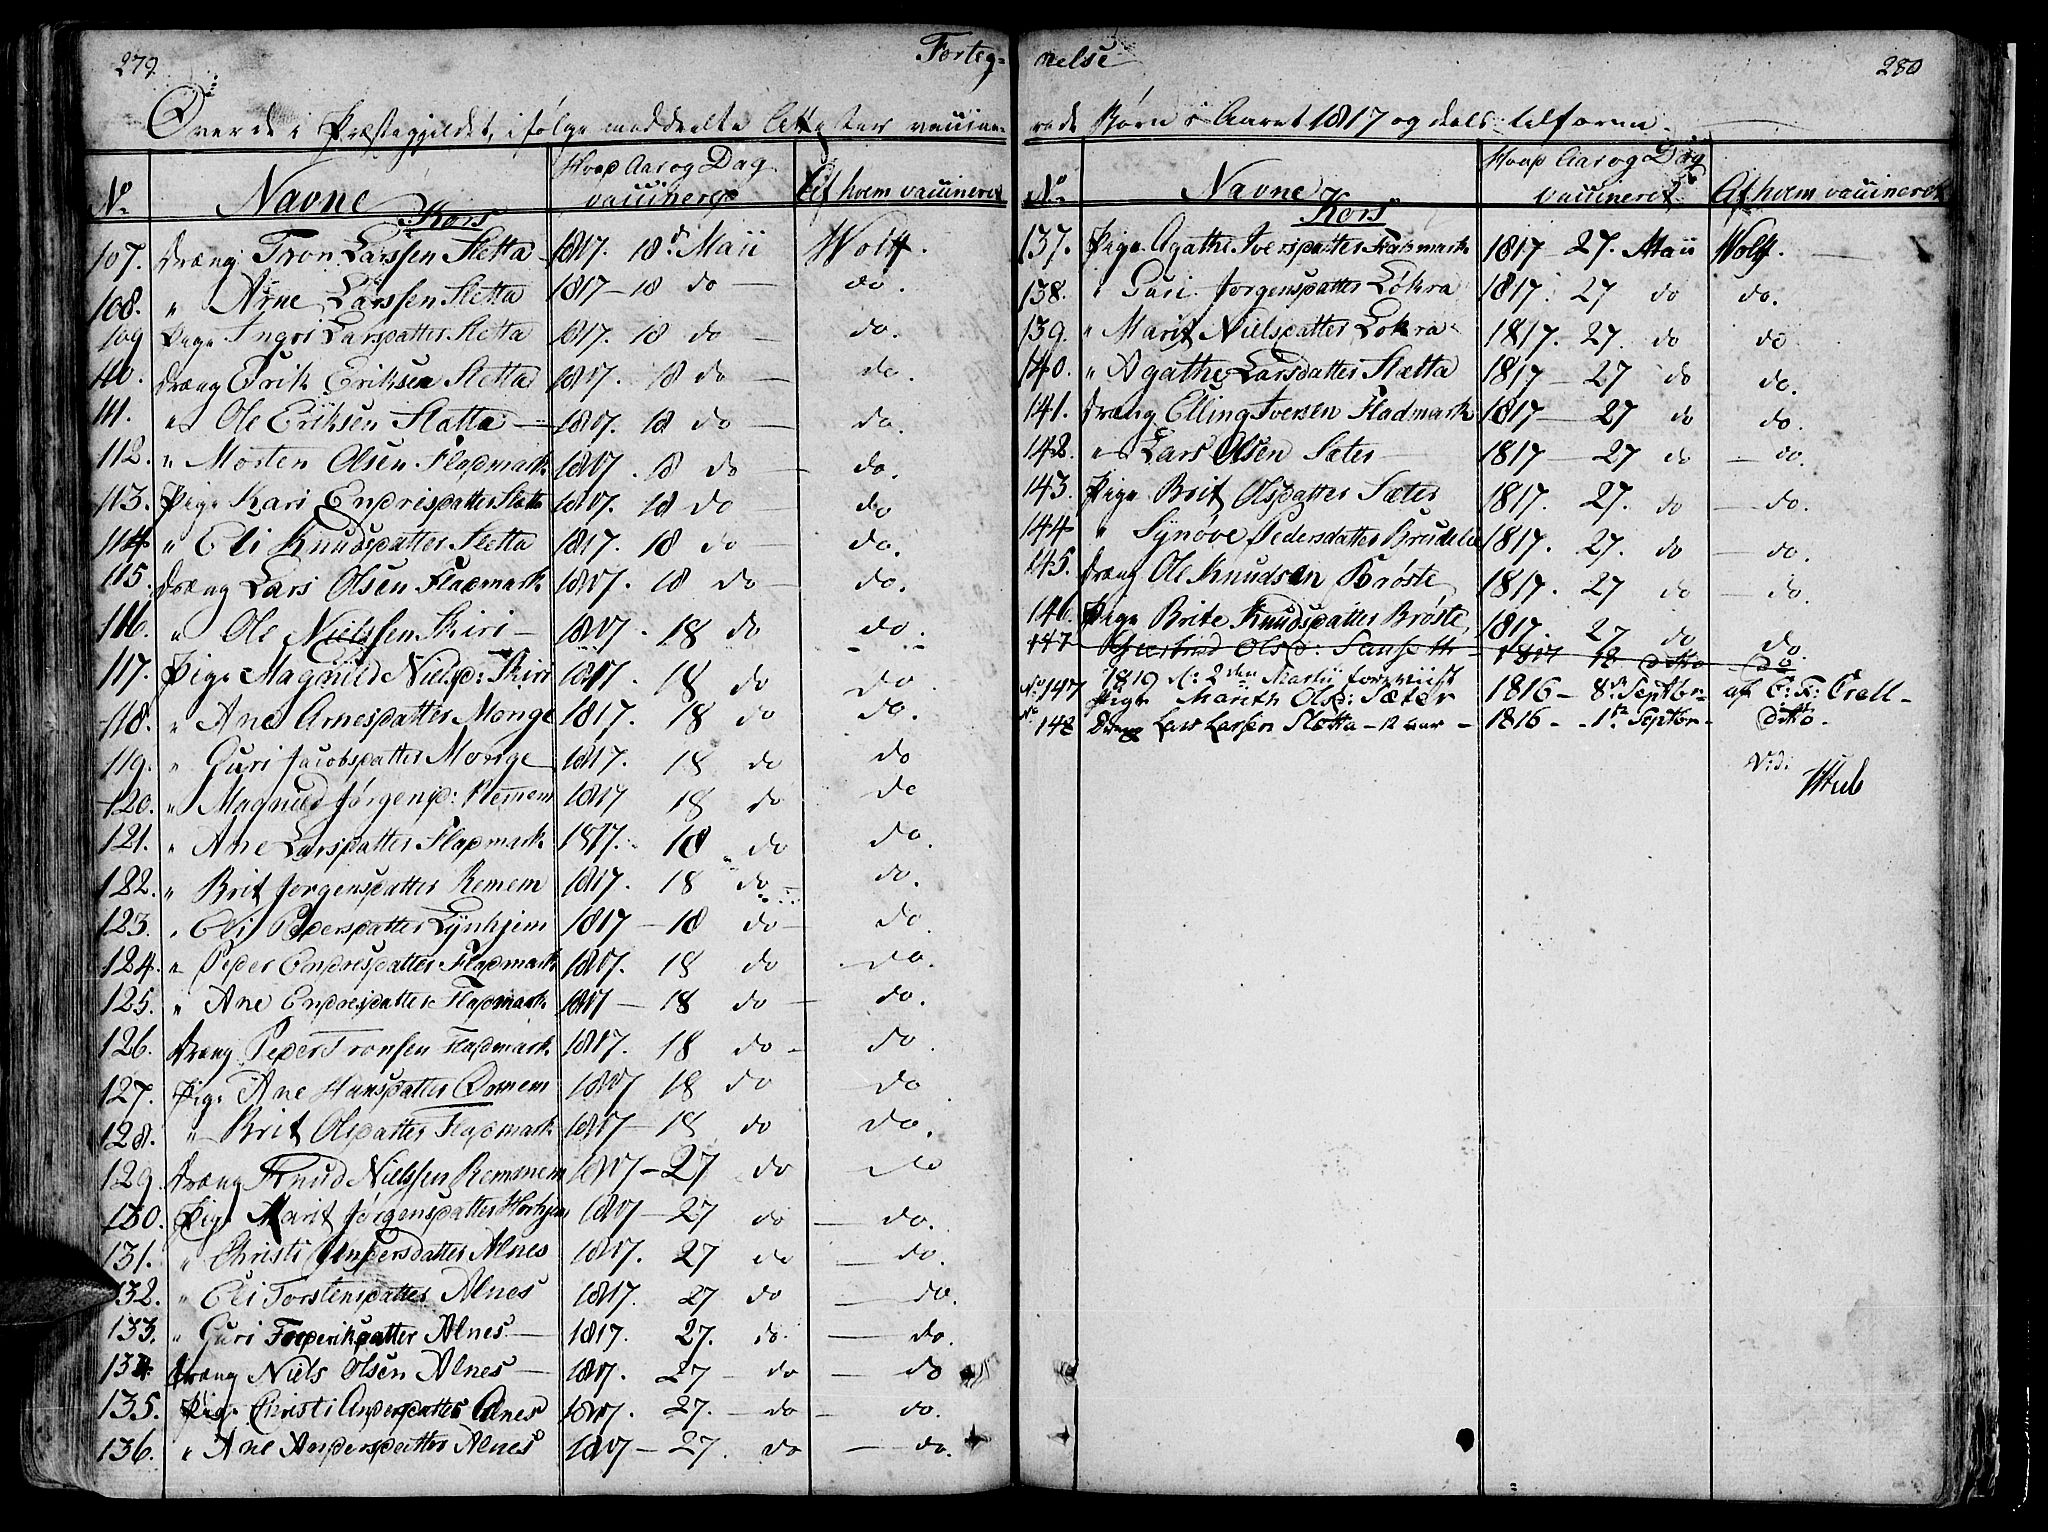 279
Forteg-
Over de i Præstegjeldet, ifølge meddeelte Attester vaccine-
No
Navne
Hvad Aar og Dag vaccineret
Af hvem vaccineret
Kors
107. Dræng Tron Larssen Sletta 1817. 18de Maii Wolff.
108. " Arne Larssen Sletta 1817 — 18 do — do.
109 Pige Ingri Larsdatter Sletta 1817. 18 do do.
110. Dræng Erik Eriksen Sletta 1817. 18 do — do.
111. " Ole Eriksen Sletta — 1817. 18 do — do.
112. " Morten Olsen Fladmark 1817. 18 do — do.
113. Pige Kari Endresdatter Sletta 1817. 18 do — do
114 " Eli Knudsdatter Sletta 1817. 18 do — do.
115. Dræng Lars Olsen Fladmark 1817. 18 do — do.
116. " Ole Nielssen Skiri — 1817. 18 do do.
117. Pige Magnild Nielsd: Skiri 1817. 18 do do.
118. " Ane Arnesdatter Monge 1817. 18 do do.
119. " Guri Jacobsdatter Monge 1817. 18 do do
120. " Magnild Jørgensd: Remem 1817 18 do do
121. " Ane Larsdatter Fladmark 1817. 18 do do.
122. " Brit Jørgensdatter Remem 1817. 18 do do.
123. " Eli Pedersdatter Lynhjem 1817 — 18 do — do.
124. " Peder Endresdatter Fladmark 1817. 18 do do.
125. " Ane Endresdatter Fladmark 1817 — 18 do — do.
126. Dræng Peder Tronsen Fladmark 1817. 18 do — do.
127. Pige Ane Hansdatter Ormem 1817 18 do do
128. " Brit Olsdatter Fladmark 1817 — 18 do do.
129. Dræng Knud Nielssen Remmem 1817 — 27 do do
130. Pige Marit Jørgensdatter Horhjem 1817 — 27 do — do.
131. " Christi Andersdatter Alnes 1817. 27 do — do.
132. " Eli Torstensdatter Alnes 1817. 27 do — do.
133. " Guri Frederiksdatter Alnes — 1817. 27. do. — do.
134. Dræng Niels Olsen Alnes — 1817. 27 — do — do
135. Pige Christi Andersdatter Alnes 1817. 27. — do — do.
136. " Ane Andersdatter Alnes 1817 — 27. do — do.
nelse
280
rede Børn i Aaret 1817 og dels tilforn.
No
Navne
Hvad Aar og Dag vaccineret
Af hvem vaccineret
Kors
137. Pige Agathe Iversdatter Fladmark 1817 — 27. Maii Wolff.
138. " Guri Jørgensdatter Løkra 1817. 27 do do.
139. " Marit Nielsdatter Løkra 1817. 27. do do
140. " Agathe Larsdatter Sletta 1817 — 27 do do.
141. Dræng Elling Iversen Fladmark 1817 — 27 do do.
142. " Lars Olsen Sæter — 1817 — 27 do — do.
143. Pige Brit Olsdatter Sæter 1817. 27. do — do.
144 " Synøve Pedersdatter 1817. 27. do — do.
145. Dræng Ole Knudsen Brøste, 1817. 27 do — do.
146. Pige Brite Knudsdatter Brøste, 1817. 27 do do.
147 Olsd: 1817 18 ditto do
1819 d: 2den Martii foreviist
No 147 Pige Marith Olsd: Sæter 1816 — 8de Septbr — af C: F: Krall —
No 148 Dreng Lars Larsen Sletta — 12 aar — 1816 — 1te Septbr — ditto.
Vidi
Stub